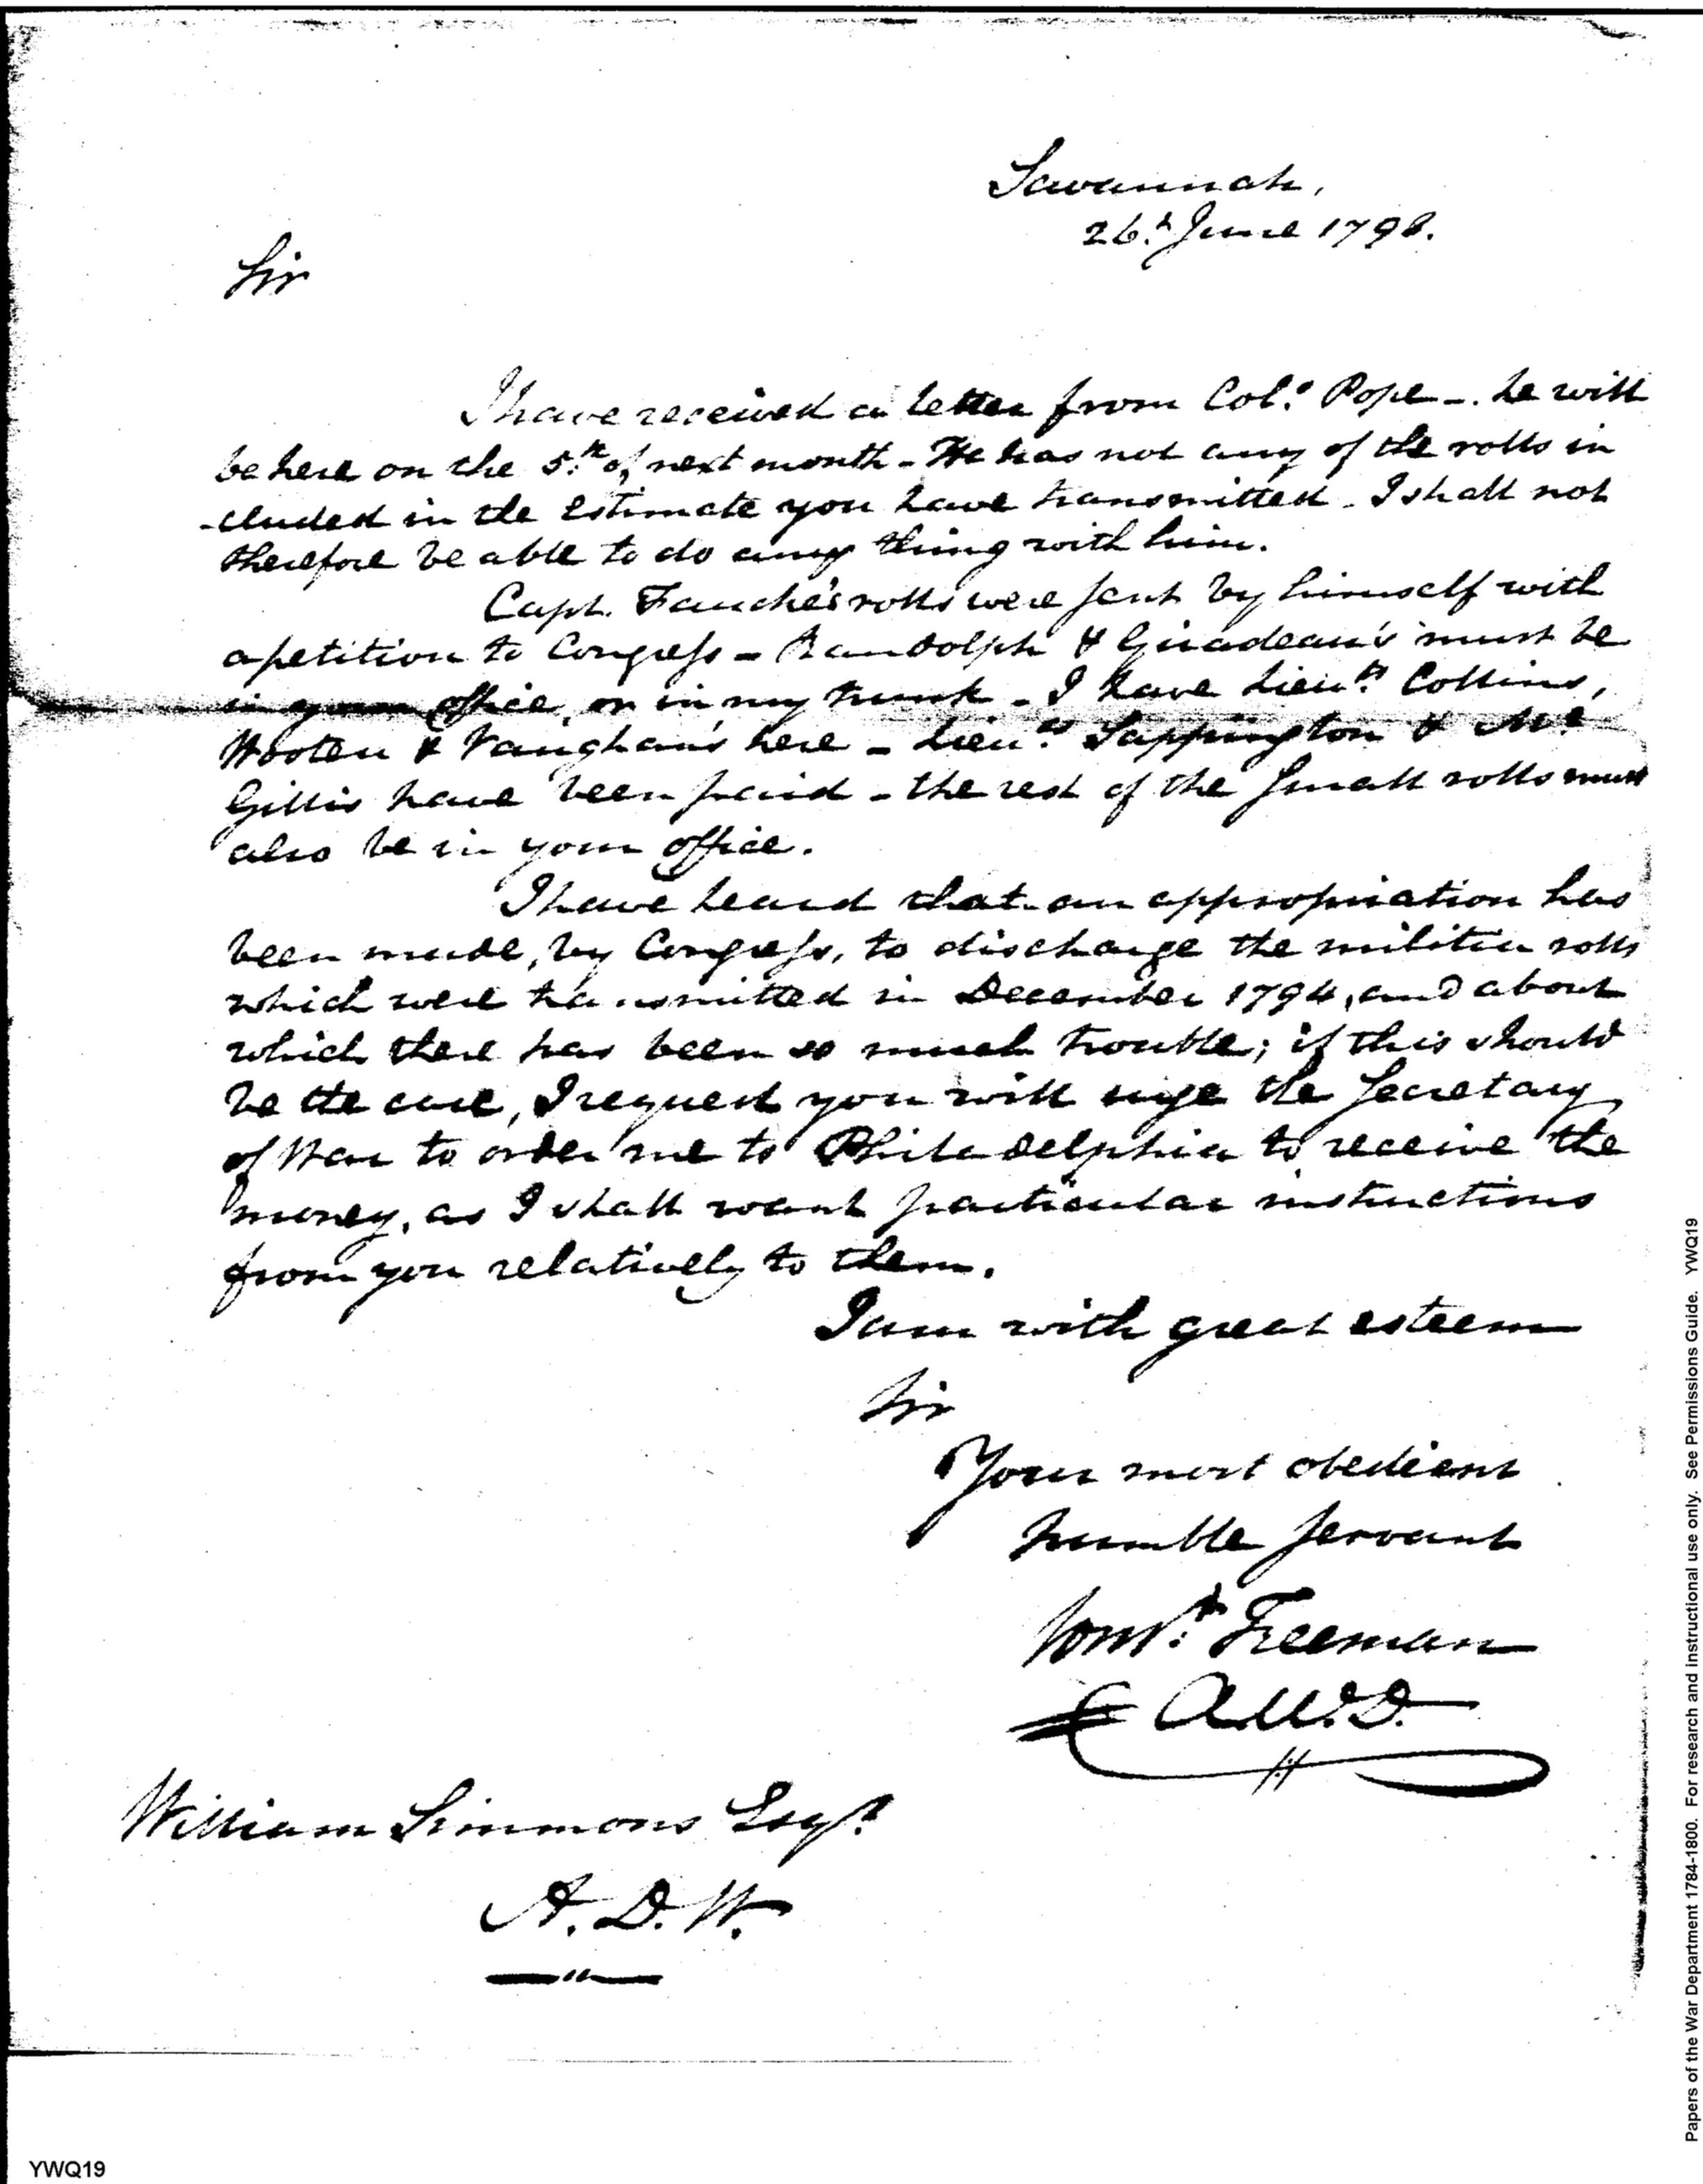 Savannah,
26.th June 1798.
Sir
I have received a letter from Col.o Pope -. he will
be here on the 5.th of next month - He has not any of the rolls in
-cluded in the estimate you have transmitted - I shall not
therefore be able to do any thing with him.
Capt. Fauche's rolls were sent by himself with
a petition to Congress - Randolph & Giradeau's must be
in your office, or in my trunk - I have Lieu.ts Collins,
Wooten & Vaughan's here - Lieu.ts Sappington & Mc
Gillis have been paid - the rest of the small rolls must
also be in your office.
I have heard that an appropriation has
been made, by Congress, to discharge the militia rolls
which were transmitted in December 1794, and about
which there has been so much trouble; if this should
be the case, I request you will urge the Secretary
of War to order me to Philadelphia to receive the
money, as I shall want particular instructions
from you relatively to them.
I am with great esteem
Sir
Your most obedient
humble servant
Freeman
William Simmons Esqr.
A. D. W.
Papers of the War Department 1784-1800. For research and instructional use only. See Permissions Guide. YWQ19
YWQ19